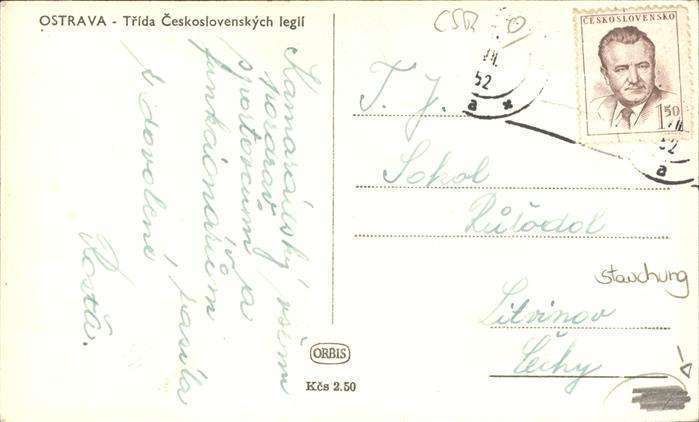 OSTRAVA - Třída Československých legií
Kamarádský
pozdrav všem
sportovcům a
funkcionářům
z dovolené
Kosťa.
ČSR
ČESKOSLOVENSKO
1.50
52
a
T. J.
Sokol
Růžodol
stauchung
Litvínov
Čechy
ORBIS
Kčs 2.50